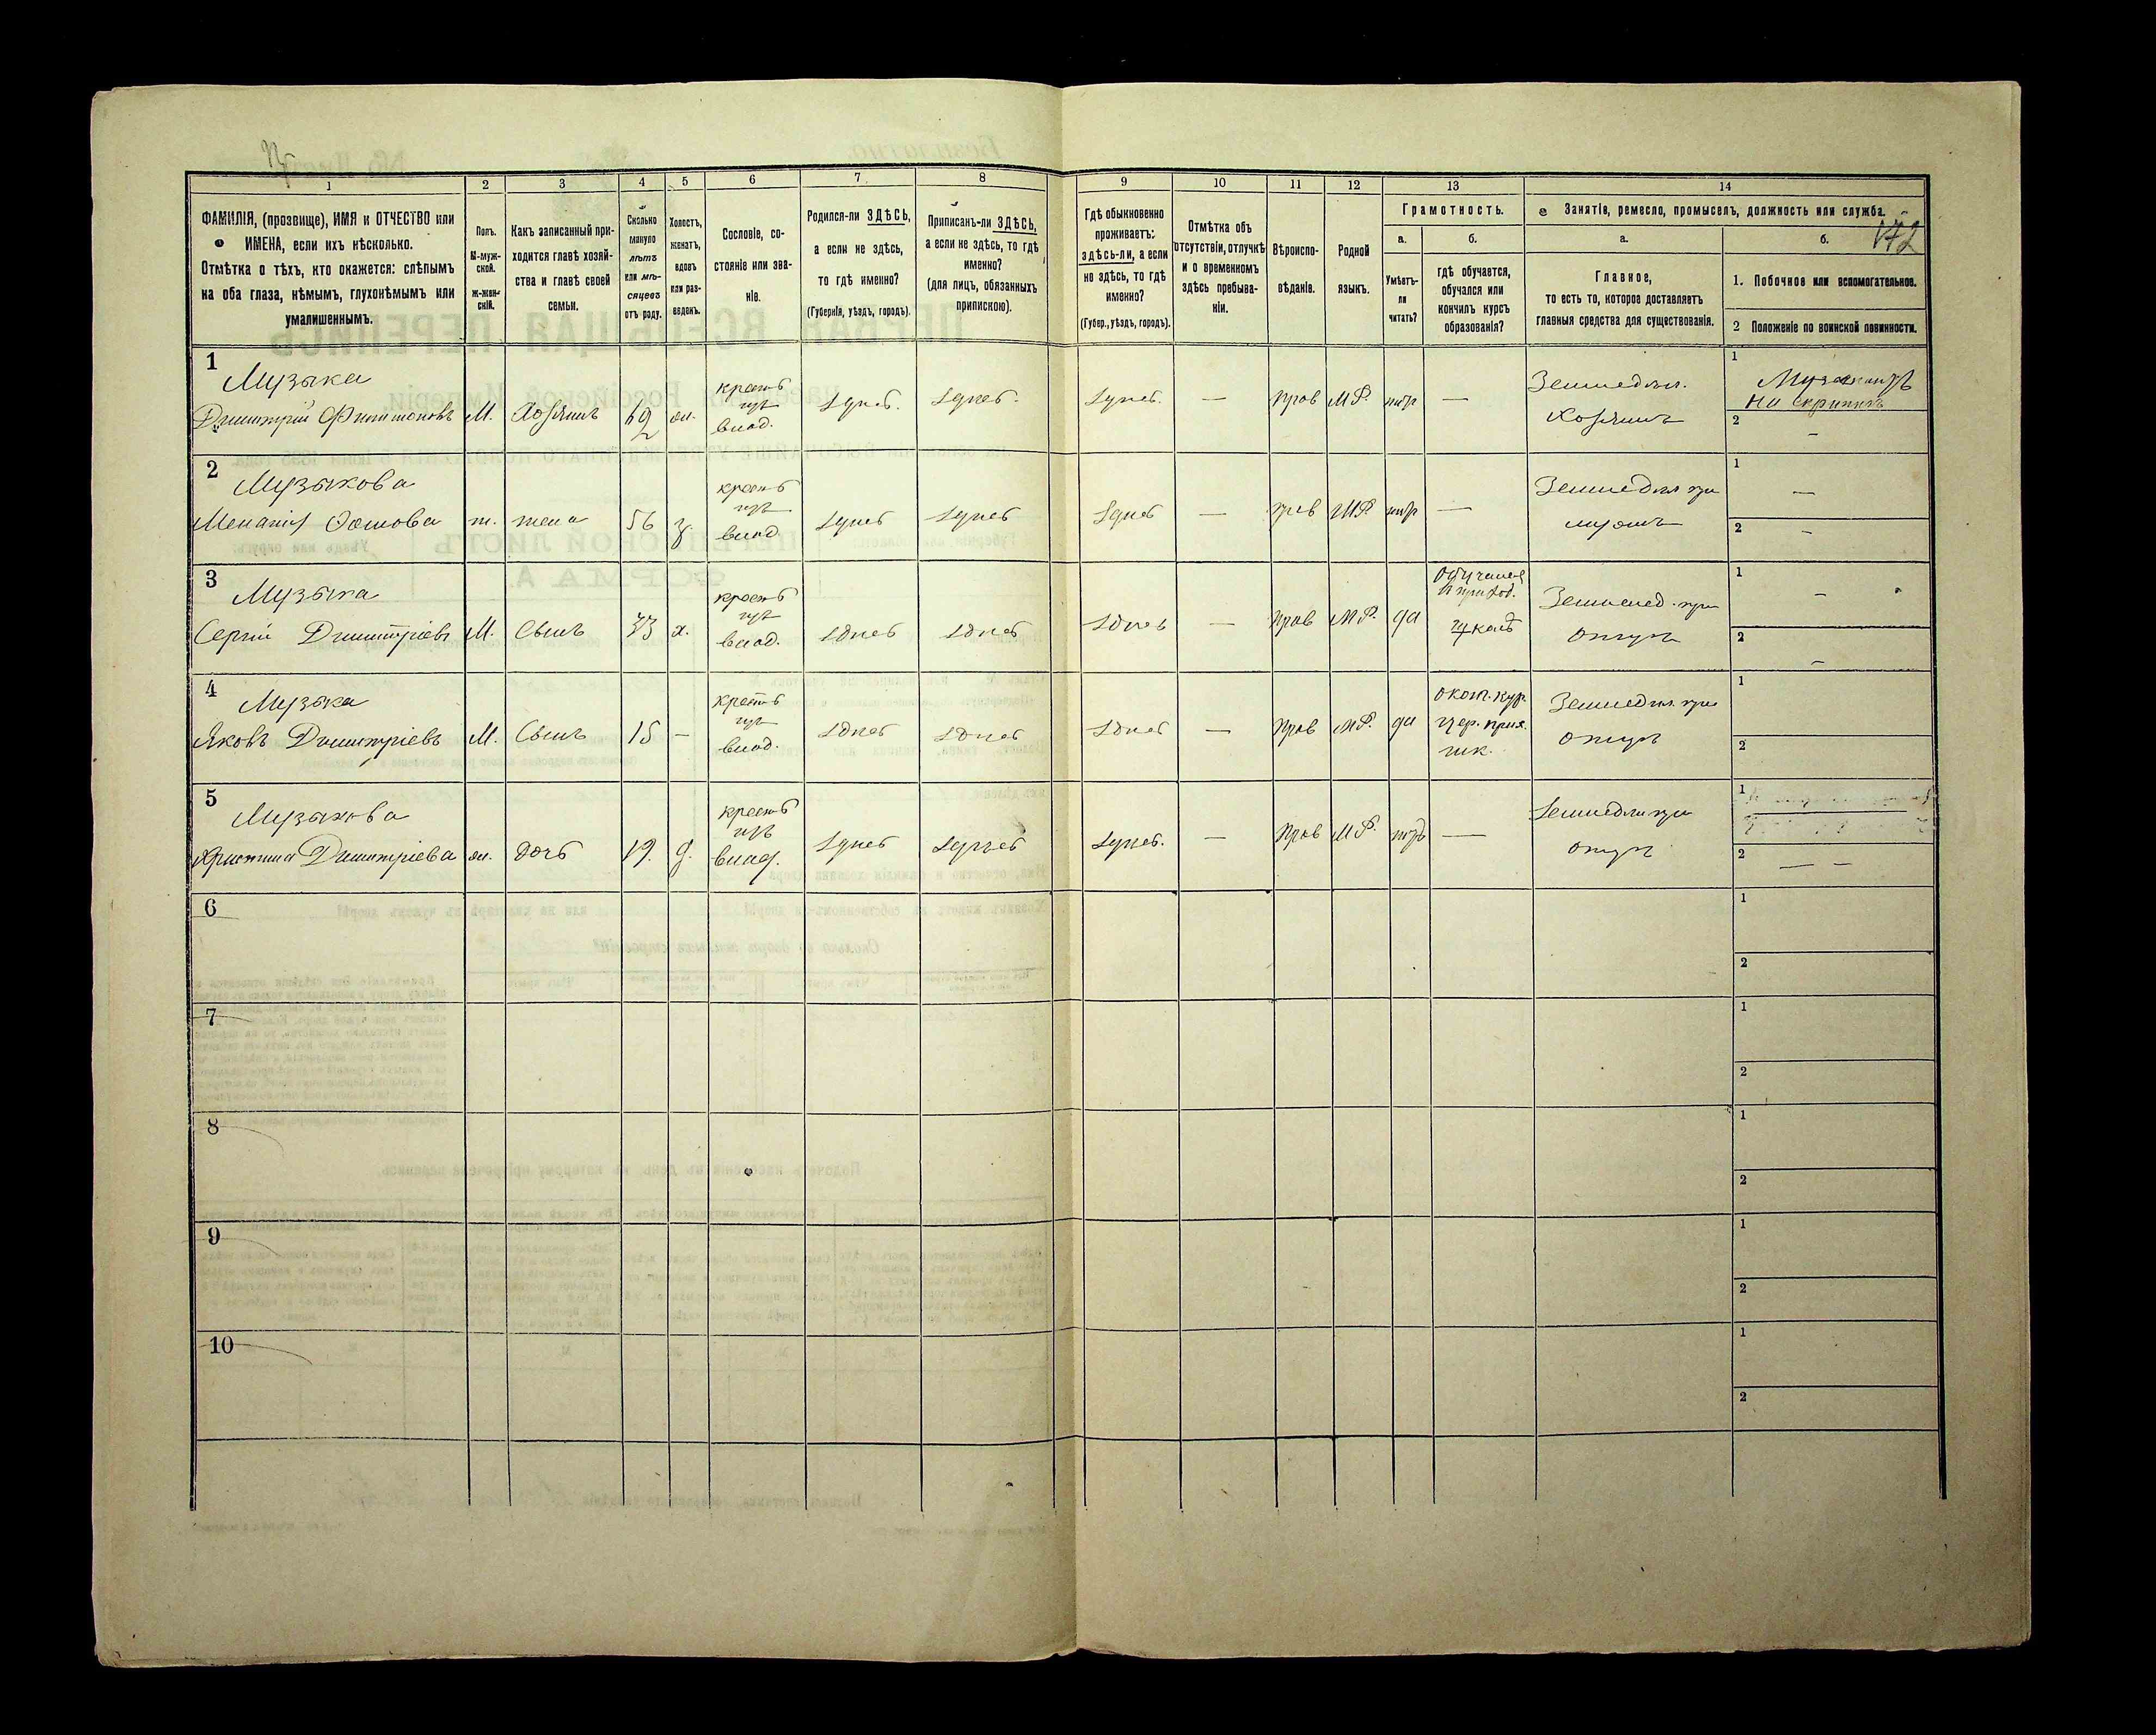 1
2
3
4
5
6
7
8
ФАМИЛІЯ, (прозвище), ИМЯ и ОТЧЕСТВО или
ИМЕНА, если ихъ нѣсколько.
Отмѣтка о тѣхъ, кто окажется: слѣпымъ
на оба глаза, нѣмымъ, глухонѣмымъ или
умалишеннымъ.
Полъ.
М-муж-
ской.
Ж-жен-
скій.
Какъ записанный при-
ходится главѣ хозяй-
ства и главѣ своей
семьи.
Сколько
минуло
лѣтъ
или мѣ-
сяцевъ
отъ роду.
Холостъ,
женатъ,
вдовъ
или раз-
веденъ.
Сословіе, со-
стояніе или зва-
ніе.
Родился-ли ЗДѢСЬ,
а если не здѣсь,
то гдѣ именно?
(Губернія, уѣздъ, городъ).
Приписанъ-ли ЗДѢСЬ,
а если не здѣсь, то гдѣ
именно?
(для лицъ, обязанныхъ
припискою).
9
10
11
12
13
14
Гдѣ обыкновенно
проживаетъ:
здѣсь-ли, а если
не здѣсь, то гдѣ
именно?
(Губер., уѣздъ, городъ).
Отмѣтка объ
отсутствіи, отлучкѣ
и о временномъ
здѣсь пребыва-
ніи.
Вѣроиспо-
вѣданіе.
Родной
языкъ.
Грамотность.
а.
Умѣетъ-
ли
читать?
б.
гдѣ обучается,
обучался или
кончилъ курсъ
образованія?
Занятіе, ремесло, промыселъ, должность или служба.
172
а.
Главное,
то есть то, которое доставляетъ
главныя средства для существованія.
б.
1. Побочное или вспомогательное.
2 Положеніе по воинской повинности.
1
Музыка
Дмитрій Филимоновъ М. Хозяинъ
крест
изъ
влад.
Здѣсь. Здѣсь. Здѣсь. — прав М.Р. нѣтъ —
Земледѣл.
Хозяинъ
1
Музыкантъ
на скрипкѣ
2 —
2
Музыкова
жена 56 з
крест
изъ
влад
Здѣсь Здѣсь Здѣсь — прав М.Р. нѣтъ —
Земледѣл при
мужѣ
1 —
2 —
3
Музыка
Сергій Дмитріевъ М. Сынъ 33 х.
крест
изъ
влад.
Здѣсь Здѣсь Здѣсь — прав М.Р. да
школѣ
Земледѣл. при
отцѣ
1 —
2 —
4
Музыка
Яковъ Дмитріевъ М. Сынъ 15 —
крест
изъ
влад.
Здѣсь Здѣсь Здѣсь — прав М.Р. да
окон. кур.
шк.
Земледѣл. при
отцѣ
1
2
5
Музыкова
Христина Дмитріева ж. дочь 19. д.
крест
изъ
влад.
Здѣсь Здѣсь Здѣсь. — прав М.Р. нѣтъ —
Земледѣл при
отцѣ
1
2 — —
6
1
2
7
1
2
8
1
2
9
1
2
10
1
2